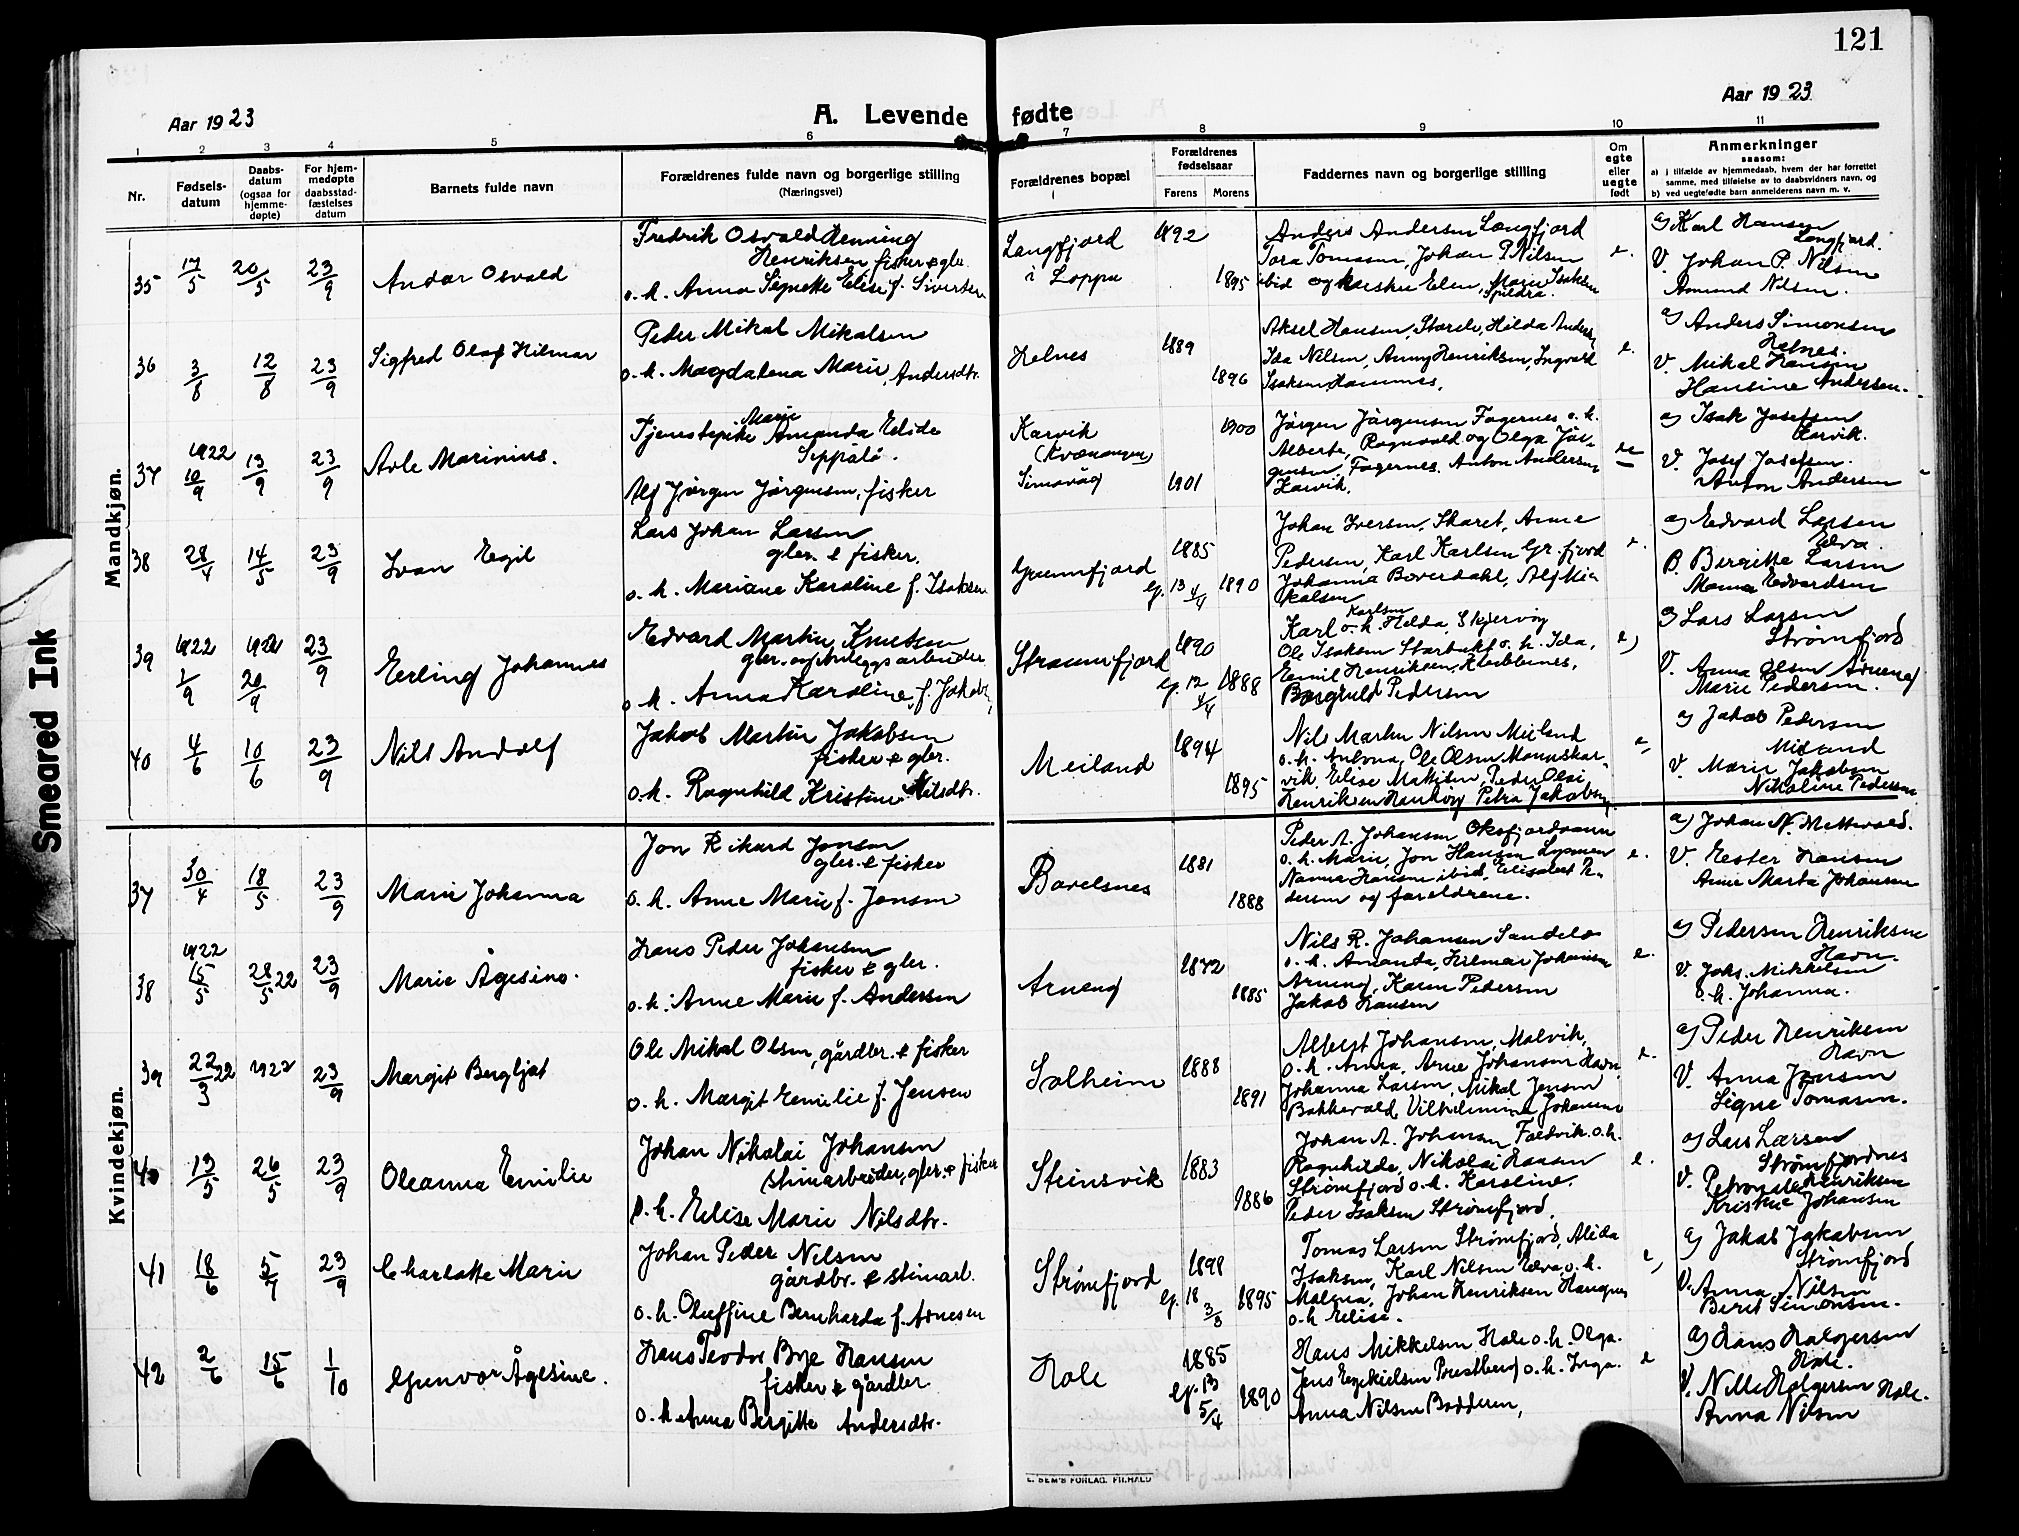 121
Aar 1923
A. Levende fødte
Aar 1923
1 2 3 4 5 6 7 8 9 10 11
Nr.
Fødsels-
datum
Daabs-
datum
(ogsaa for
hjemme-
døpte)
For hjem-
medøpte
daabsstad-
fæstelses
datum
Barnets fulde navn
Forældrenes fulde navn og borgerlige stilling
(Næringsvei)
Forældrenes bopæl
Forældrenes
fødselsaar
Farens Morens
Faddernes navn og borgerlige stilling
Om
egte
eller
uegte
født
Anmerkninger
saasom:
a) i tilfælde av hjemmedaab, hvem der har forrettet
samme, med tilføielse av to daabsvidners navn, og
b) ved uegtefødte barn anmelderens navn m. v.
Mandkjøn.
35 17/5 20/5 23/9 Andor Osvald
Fredrik Osvald Henning
Henriksen fisker & gbr.
o. h. Anna Signette Elise f. Sivertsen
Langfjord
i Loppa
1892
1895
Anders Andersen Langfjord
Tora Tomasen, Johan P Nilsen
ibid og Elen, Marie Isaksen
Spildra.
e.
a) Karl Hansen
Langfjord.
V. Johan P. Nilsen
Amund Nilsen.
36 3/8 12/8 23/9 Sigfred Olaf Hilmar
Peder Mikal Mikalsen
o. h. Magdalena Marie Andersdtr.
Helnes
1889
1896
Aksel Hansen, Hilda Anders,
Ida Nilsen, Anny Henriksen, Ingvart
Isaksen, Hamnes.
e.
a) Anders Simonsen
Helnes.
V. Mikal Hansen
Hansine Andersen.
37 1922 10/9 13/9 23/9 Arle Marinius.
Tjenestepike Marie Amanda Elide
Seppälä.
Alf Jørgen Jørgensen, fisker
Karvik
(Kvænangen)
Simavåg
1900
1901
Jørgen Jørgensen Fagernes o. h.
Alberte, Ragnvald og Olga Jør-
gensen, Fagernes. Anton Andersen,
Karvik.
ue
a) Isak Josefsen
Karvik.
V. Josef Josefsen.
Anton Andersen
38 28/4 14/5 23/9 Ivan Egil
Lars Johan Larsen
gbr. & fisker.
o. h. Mariane Karoline f. Isaksen
Grunnfjord
1885
g. 13 4/4 1890
Johan Iversen, Skaret, Anne
Pedersen, Karl Karlsen Gr.fjord
Johanna Boverdahl, Alf Mi-
kalsen
e.
a) Edvard Larsen
Elva.
B. Bergitte Larsen
Manna Edvardsen
39 1922 1/9 1922 20/9 23/9 Erling Johannes
Edvard Martin Knutsen
gbr. og Anleggsarbeider
o. h. Anna Karoline f. Jakobs,
Straumfjord
1890
g. 12 4/4 1888
Karl Karlsen o. h. Helda, Skjervøy
Ole Isaksen Storbukt o. h. Ida,
Emil Henriksen, Klubbenes,
Borghild Pedersen
e)
a) Lars Larsen
Strømfjord
V. Anna Olsen Arneng
Marie Pedersen.
40 4/6 10/6 23/9 Nils Andolf
Jakob Martin Jakobsen
fisker & gbr.
o. h. Ragnhild Kristine Nilsdtr.
Meiland
1894
1895
Nils Martin Nilsen Meiland
o. h. Antona, Ole Olsen Mannskar-
vik, Elise Mattisen, Peder Olai
Henriksen Haukøy Petra Jakobsen
e,
a) Jakob Pedersen
Meiland
V. Marie Jakobsen
Nikoline Pedersen
Kvindekjøn.
37 30/4 18/5 23/9 Marie Johanna
Jon Rikard Jonsen
gbr. & fisker
o. h. Anne Marie f. Jensen
Bavelsnes
1881
1888
Peder A. Johansen Oksfjordvann
o. h. Marie, Jon Hansen
Nanna Hansen ibid, Elisabet Pe-
dersen og foreldrene.
e.
a) Johan N. Mettevold.
V. Ester Hansen
Anne Marta Johansen
38 1922 15/5 28/5 22 23/9 Marie Ågesine.
Hans Peder Johansen
fisker & gbr.
o. h. Anne Marie f. Andersen
Arneng
1872
1885
Nils R. Johansen Sandela
o. h. Amanda, Hilmar Johansen
Arneng, Karen Pedersen
Jakob Hansen
e.
a) Pedersen Henriksen
Havn.
V. Johs. Mikkelsen
o. h. Johanna.
39 22/3 22 1922 23/9 Margit Bergljot
Ole Mikal Olsen, gårdbr. & fisker
o. h. Margit Emelie f. Jensen
Solheim
1888
1891
Albert Johansen, Malvik,
o. h. Anna, Arne Johansen Havn,
Johanna Larsen, Mikal Jensen
Bakkevold, Vilhelmina Johansen
e.
a) Peder Henriksen
Havn
V. Anna Jensen
Signe Tomasen.
40 13/5 26/5 23/9 Oleanna Emilie
Johan Nikolai Johansen
stenarbeider, gbr. & fisker
o. h. Elise Marie Nilsdtr.
Steinsvik
1883
1886
Johan A. Johansen Faldvik o. h.
Ragnhilde, Nikolai Hansen
Strømfjord o. h. Karoline.
Peder Isaksen Strømfjord.
e.
a) Lars Larsen
Strømfjordnes
V. Petronelle Henriksen
Kristine Johansen
41 18/6 5/7 23/9 Charlotte Marie
Johan Peder Nilsen
gårdbr. & stenarb.
o. h. Oluffine Bernharda f. Arnesen
Strømfjord
1898
g. 18 3/3 1895
Tomas Larsen Strømfjord, Alida
Isaksen, Karl Nilsen Elva o. h.
Malena, Johan Henriksen Haugnes
o. h. Elise.
e,
a) Jakob Jakobsen
Strømfjord
V. Anna Nilsen
Berit Simonsen.
42 2/6 15/6 1/10 Gunvor Ågesine.
Hans Teodor Bye Hansen
fisker & gårdbr
o. h. Anna Bergitte Andersdtr.
Hole
1885
g. 13 5/4 1890
Hans Mikkelsen Hole o. h. Olga.
Jens Esekielsen Prestberg o. h. Inga.
Anna Nilsen Badderen,
e
a) Hans Holgersen
Hole.
V. Nelle Holgersen Hole.
Anna Nilsen
E. SEM'S FORLAG. FR.HALD
Smeared Ink